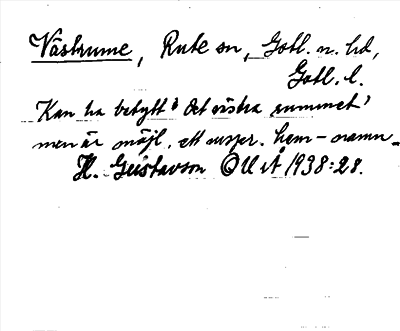 Västrume, Rute sn, Gotl. n. hd,
Gotl. l.
Kan ha betytt 'det västra rummet'
men är möjl. ett urspr. hem-namn.
H. Gustavson OUÅ 1938:28.